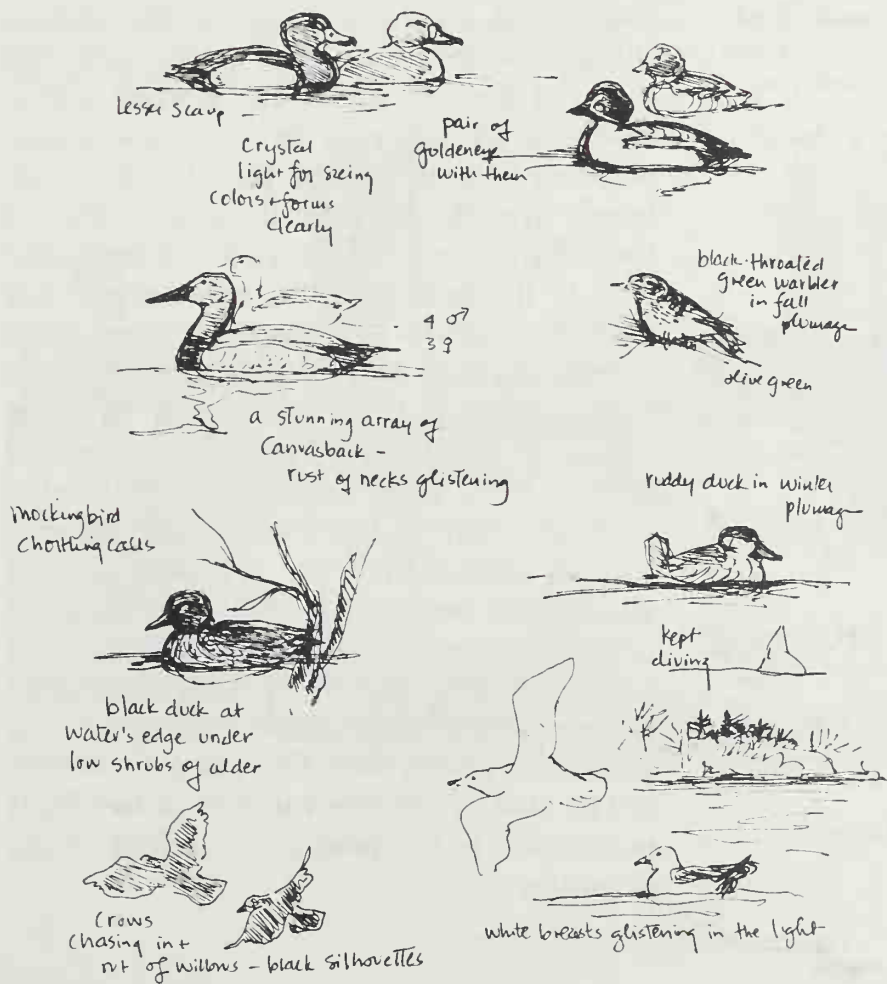 Lesser Scaup –
Crystal
light for seeing
colors + forms
clearly
pair of
goldeneye
with them
black-throated
green warbler
in fall
plumage
olive green
4 ♂
3 ♀
a stunning array of
Canvasback –
rust of necks glistening
mockingbird
chortling calls
ruddy duck in winter
plumage
kept
diving
black duck at
water's edge under
low shrubs of alder
Crows
chasing in +
out of willows – black silhouettes
white breasts glistening in the light